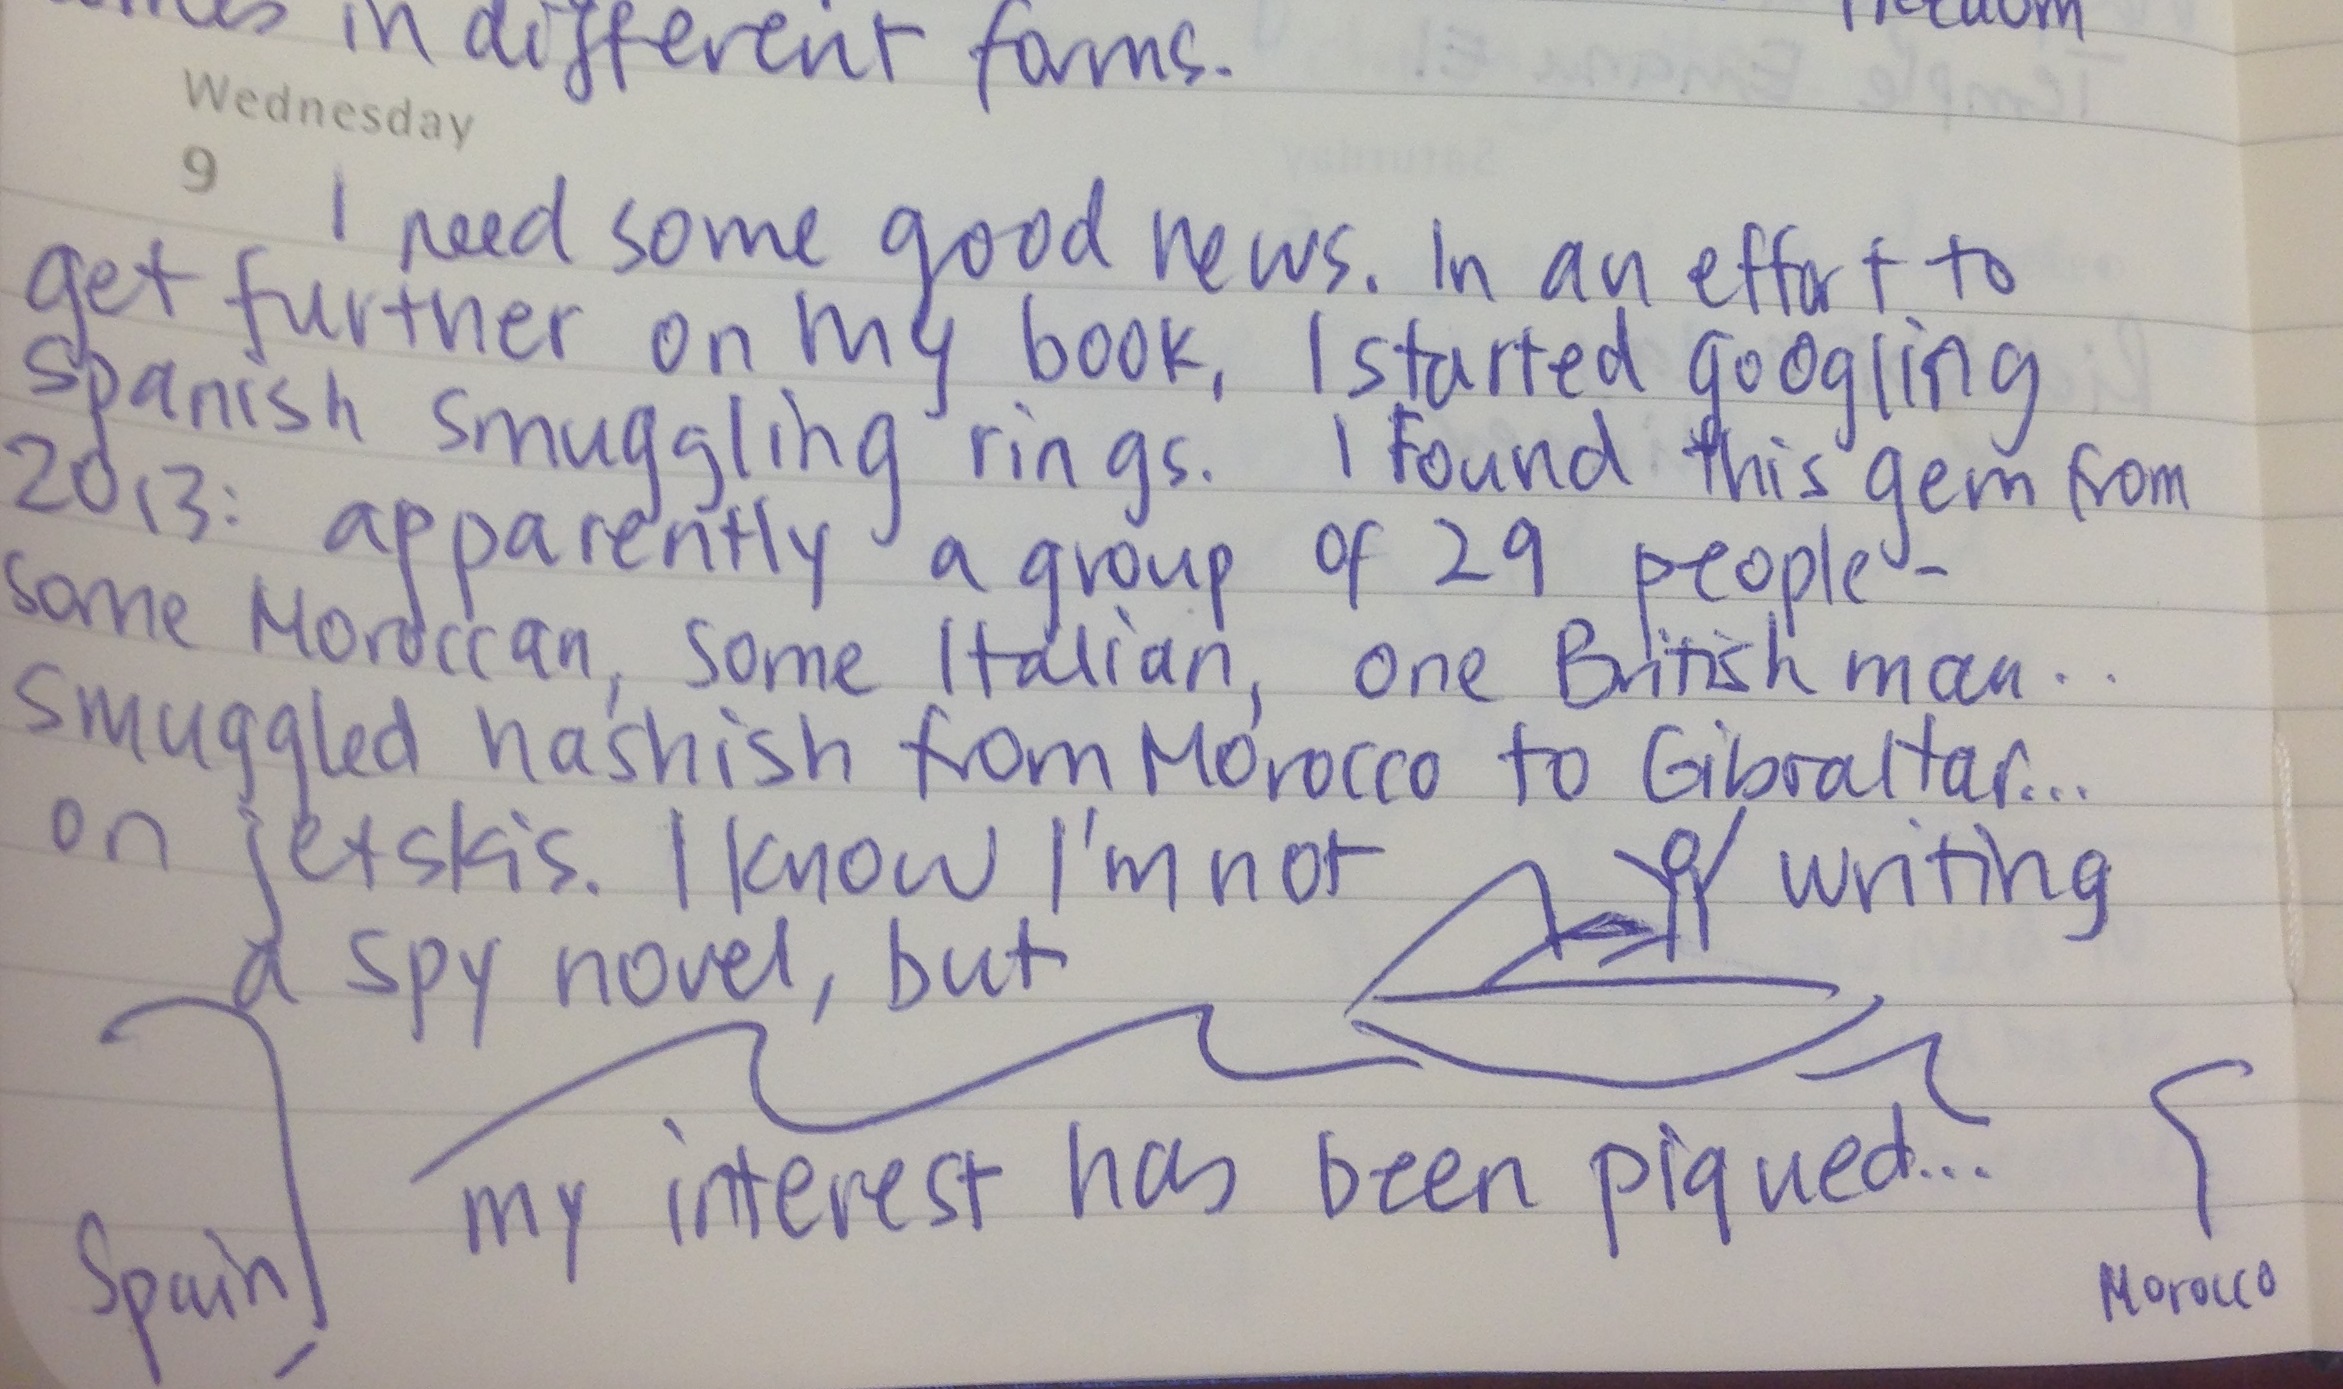 in different forms.
freedom
Wednesday
9
I need some good news. In an effort to
get further on my book, I started googling
Spanish smuggling rings. I found this gem from
2013: apparently a group of 29 people-
some Moroccan, some Italian, one British man..
smuggled hashish from Morocco to Gibraltar...
on jetskis. I know I'm not writing
a spy novel, but
my interest has been piqued...
Spain
Morocco